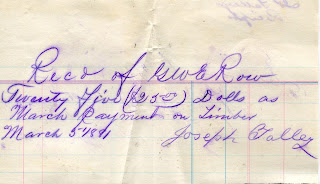 Recd of GWE Row
Twenty Five (25 00) Dolls as
March Payment on Timber
March 5 1881 Joseph Talley